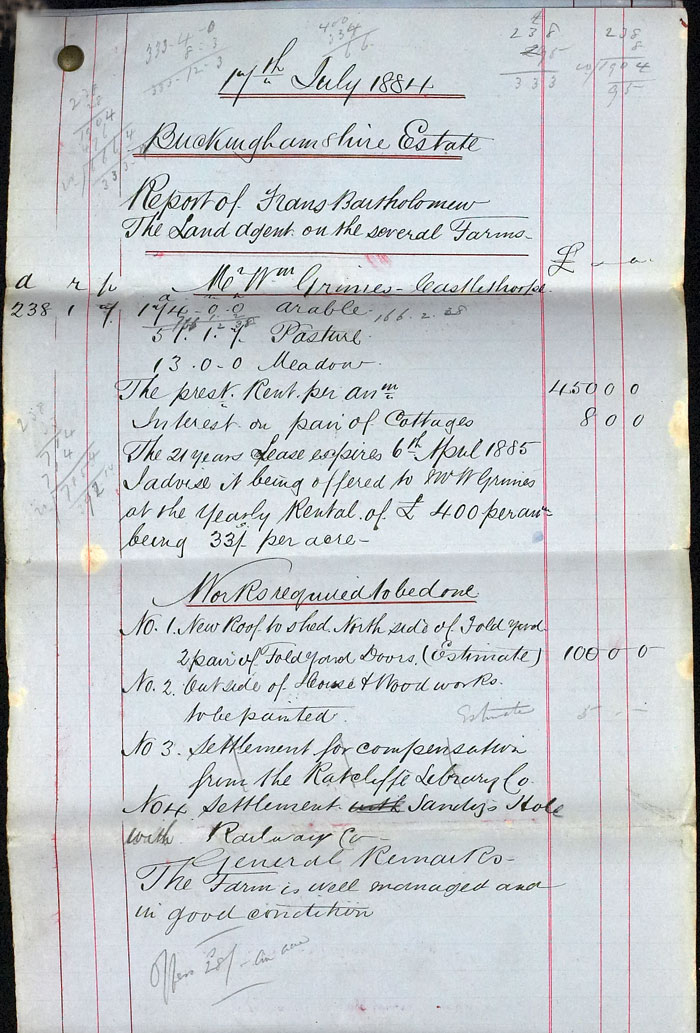 333-4-0
8-3
333-12-3
400
334
66
238
95
333
238
8
1904
95
17th July 1884
Buckinghamshire Estate
Report of Frans Bartholomew
The Land agent on the several Farms-
£
a r p Mr Wm Grimes - Castlethorpe
238 1 7 174-0-0 arable 166.2.38
51.1.7 Pasture
13.0-0 Meadow
The prest. Rent. per anm 450 0 0
Interest on pair of Cottages 8 0 0
The 21 years Lease expires 6th April 1885
I advise it being offered to Mr W Grimes
at the Yearly Rental of £ 400 per an
being 33/ per acre-
Works required to be done
No. 1. New Roof to shed North side of Fold Yard
2 pair of Fold Yard Doors. (Estimate) 100 0 0
No. 2. Outside of House & Wood works.
to be painted. Estimate 5 - -
No 3. Settlement for compensation
from the Ratcliffe Lebrary Co.
No 4. Settlement with Sandys Hole
with Railway Co-
General Remarks-
The Farm is well managed and
in good condition
Offers 28/- an acre